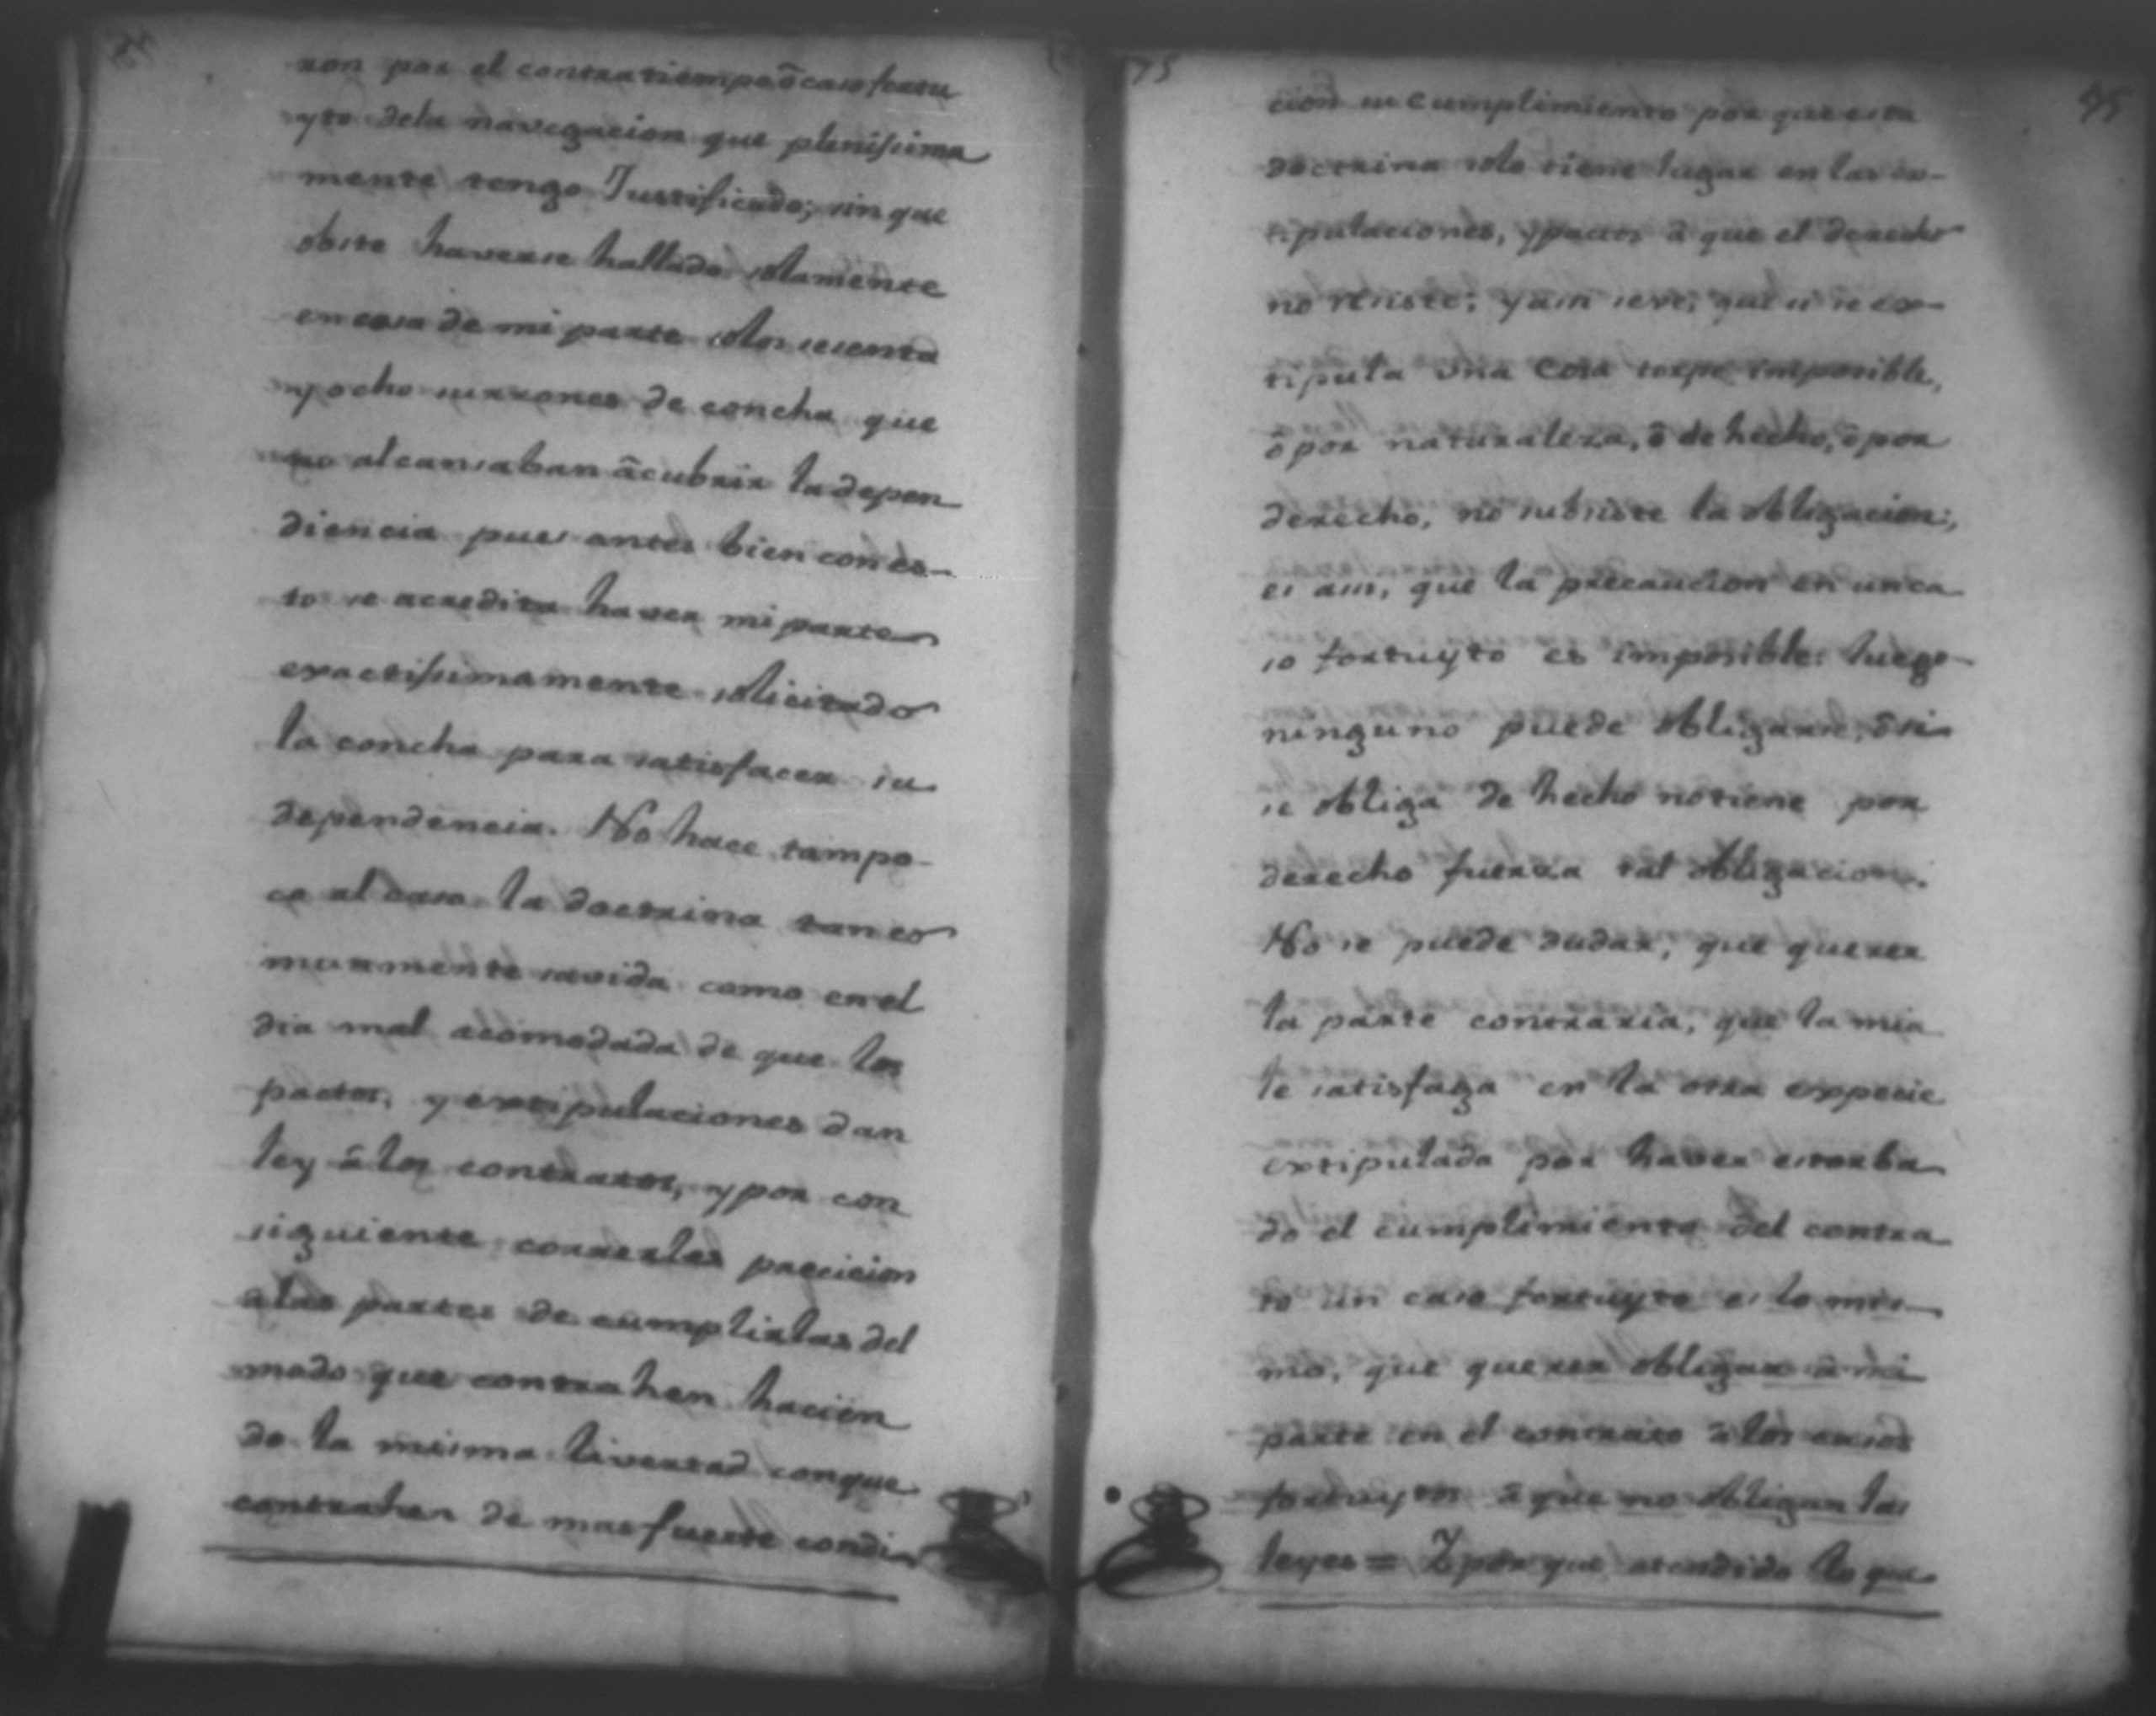 ron por el contratiempo ô caso fortu
yto dela navegacion que plenissima
mente tengo Justificado; sin que
obste haverse hallado solamente
en casa de mi parte solos sesenta
y ocho surrones de concha que
no alcansaban â cubrir la depen
diencia pues antes bien con es-
to se acredita haver mi parte
exactissimamente solicitado
la concha para satisfacer su
dependencia. No hace tampo-
co al caso la doctrina tan co
munmente savida como en el
dia mal acomodada de que los
pactos, y extipulaciones dan
ley â los contratos, y por con
siguiente correrles precicion
â las partes de cumplirlas del
modo que contrahen hacien
do la misma livertad conque
contrahen de mas fuerte condi
75
75
cion su cumplimiento por que esta
doctrina solo tiene lugar en las ex-
tipulaciones, y pactos â que el derecho
no resiste; y asi se ve, que si se ex-
tipula una cosa torpe imposible,
ô por naturaleza, ô de hecho, ô por
derecho, no subsiste la obligacion;
es asi, que la precaucion en un ca
so fortuyto es imposible: luego
ninguno puede obligarse, ô si
se obliga de hecho no tiene por
derecho fuerza tal obligacion.
No se puede dudar, que querer
la parte contraria, que la mia
le satisfaga en la otra expecie
extipulada por haver estorba
do el cumplimiento del contra
to un caso fortuyto es lo mis-
mo, que querer obligar â mi
parte en el contrato â los casos
fortuytos â que no obligan las
leyes = Y por que atendido lo que